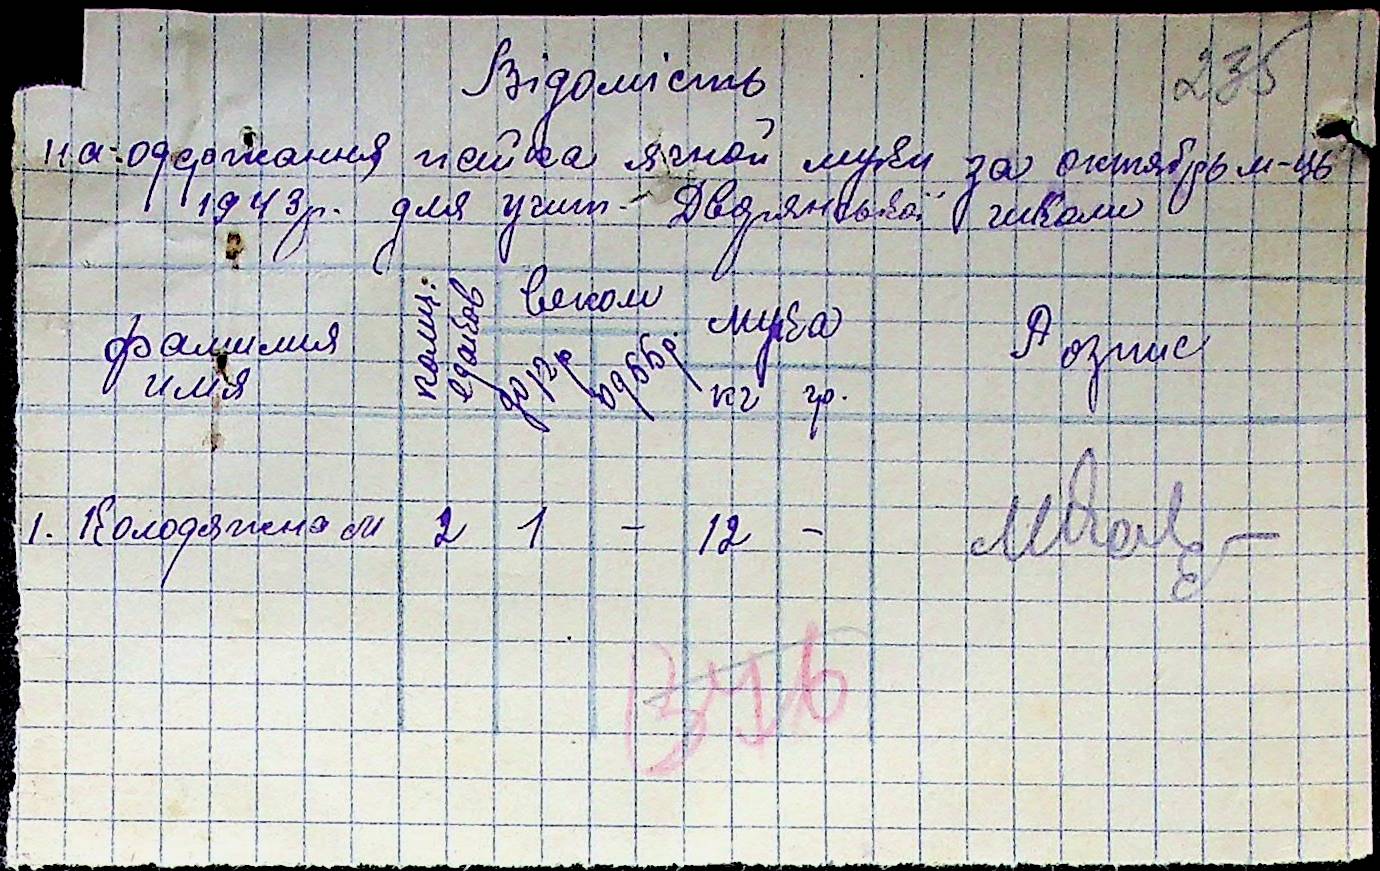 Відомість
235
на одержання пайка ячной муки за октябрь м-ць
1943р. для учит- Дворянської школи
фамилия
имя
колич:
едоков
веком
до 12 р
од 55 р.
мука
кг гр.
Розпис
1. Колодяжна М 2 1 – 12 –